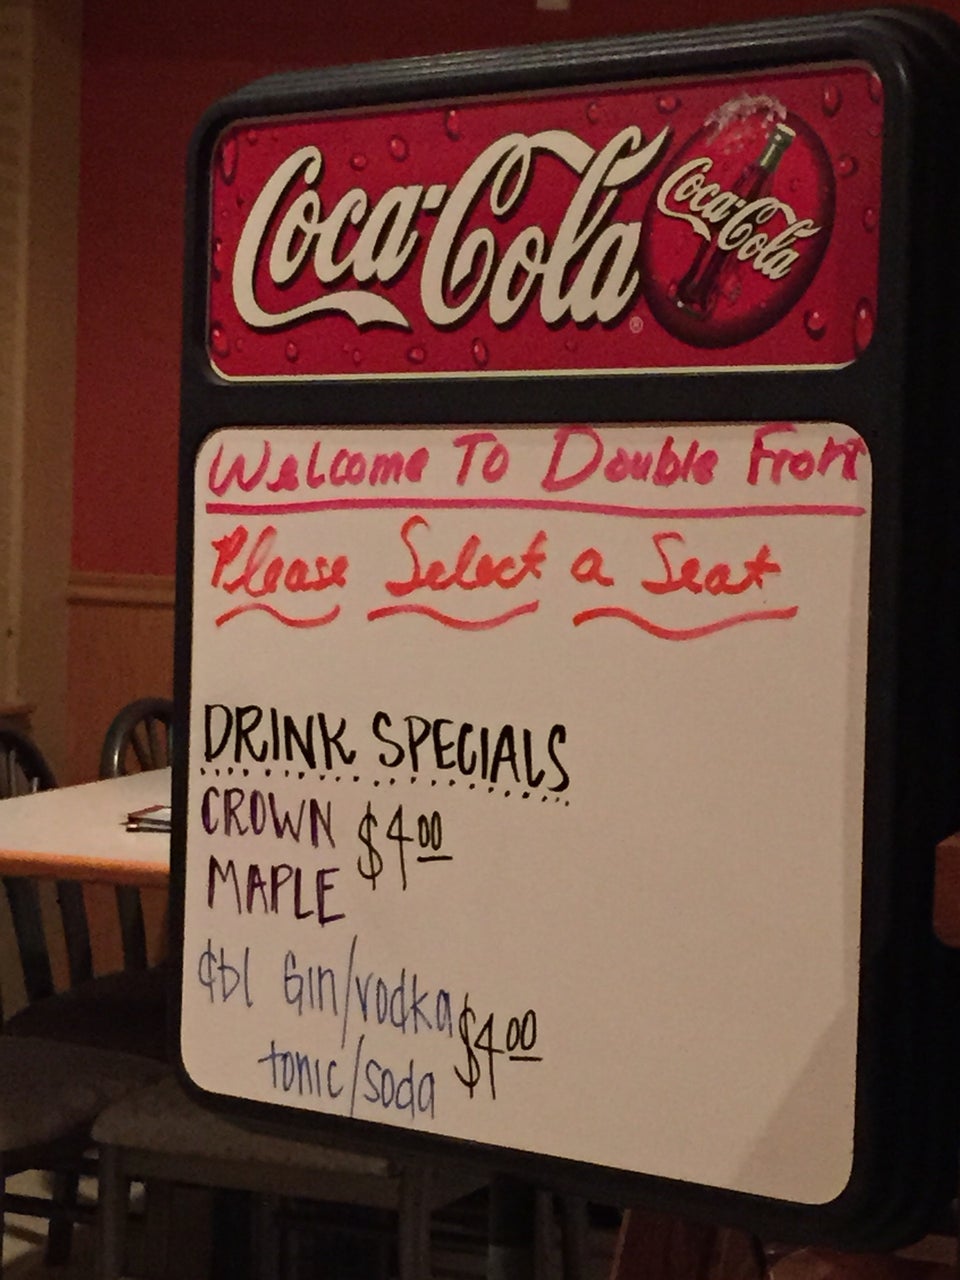 Coca-Cola ®
Coca-Cola
Welcome To Double Front
Please Select a Seat
DRINK SPECIALS
CROWN
MAPLE $4.00
dbl Gin/vodka
tonic/soda $4.00